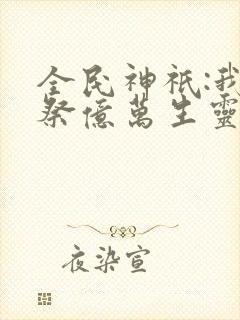 全民神祇:我
祭億萬生靈
夜染宣